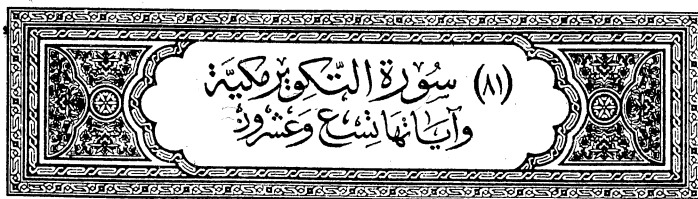 (٨١) سُورَة التَّكويرِ مَكيَّة
وَآيَاتهَا تِسْع وَعُشْرُونْ